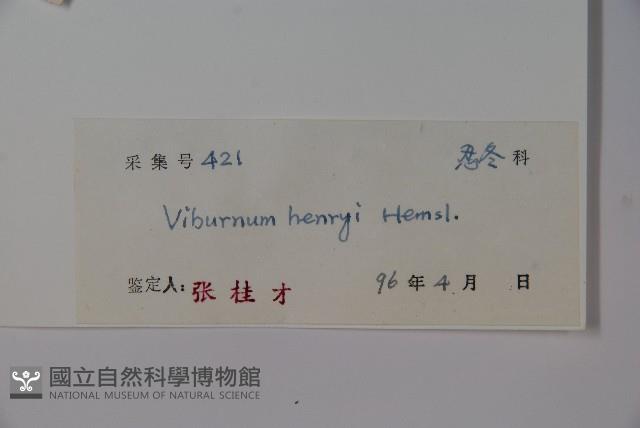 采集号 421 忍冬科
Viburnum henryi Hemsl.
鉴定人: 张桂才 96年4月 日
國立自然科學博物館
NATIONAL MUSEUM OF NATURAL SCIENCE